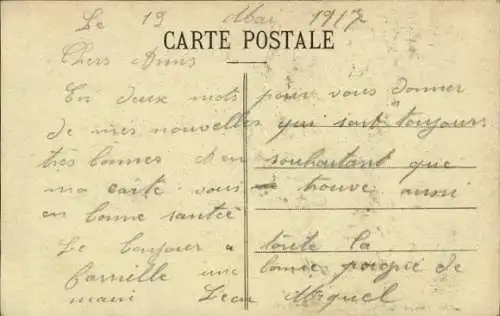 Le 19 Mai 1917
CARTE POSTALE
Chers Amis
En deux mots pour vous donner
de mes nouvelles qui sont toujours
très bonnes et en souhaitant que
ma carte vous trouve aussi
en bonne santée
Le bonjour a toute la
famille une bonne poigné de
main Leon Miquel